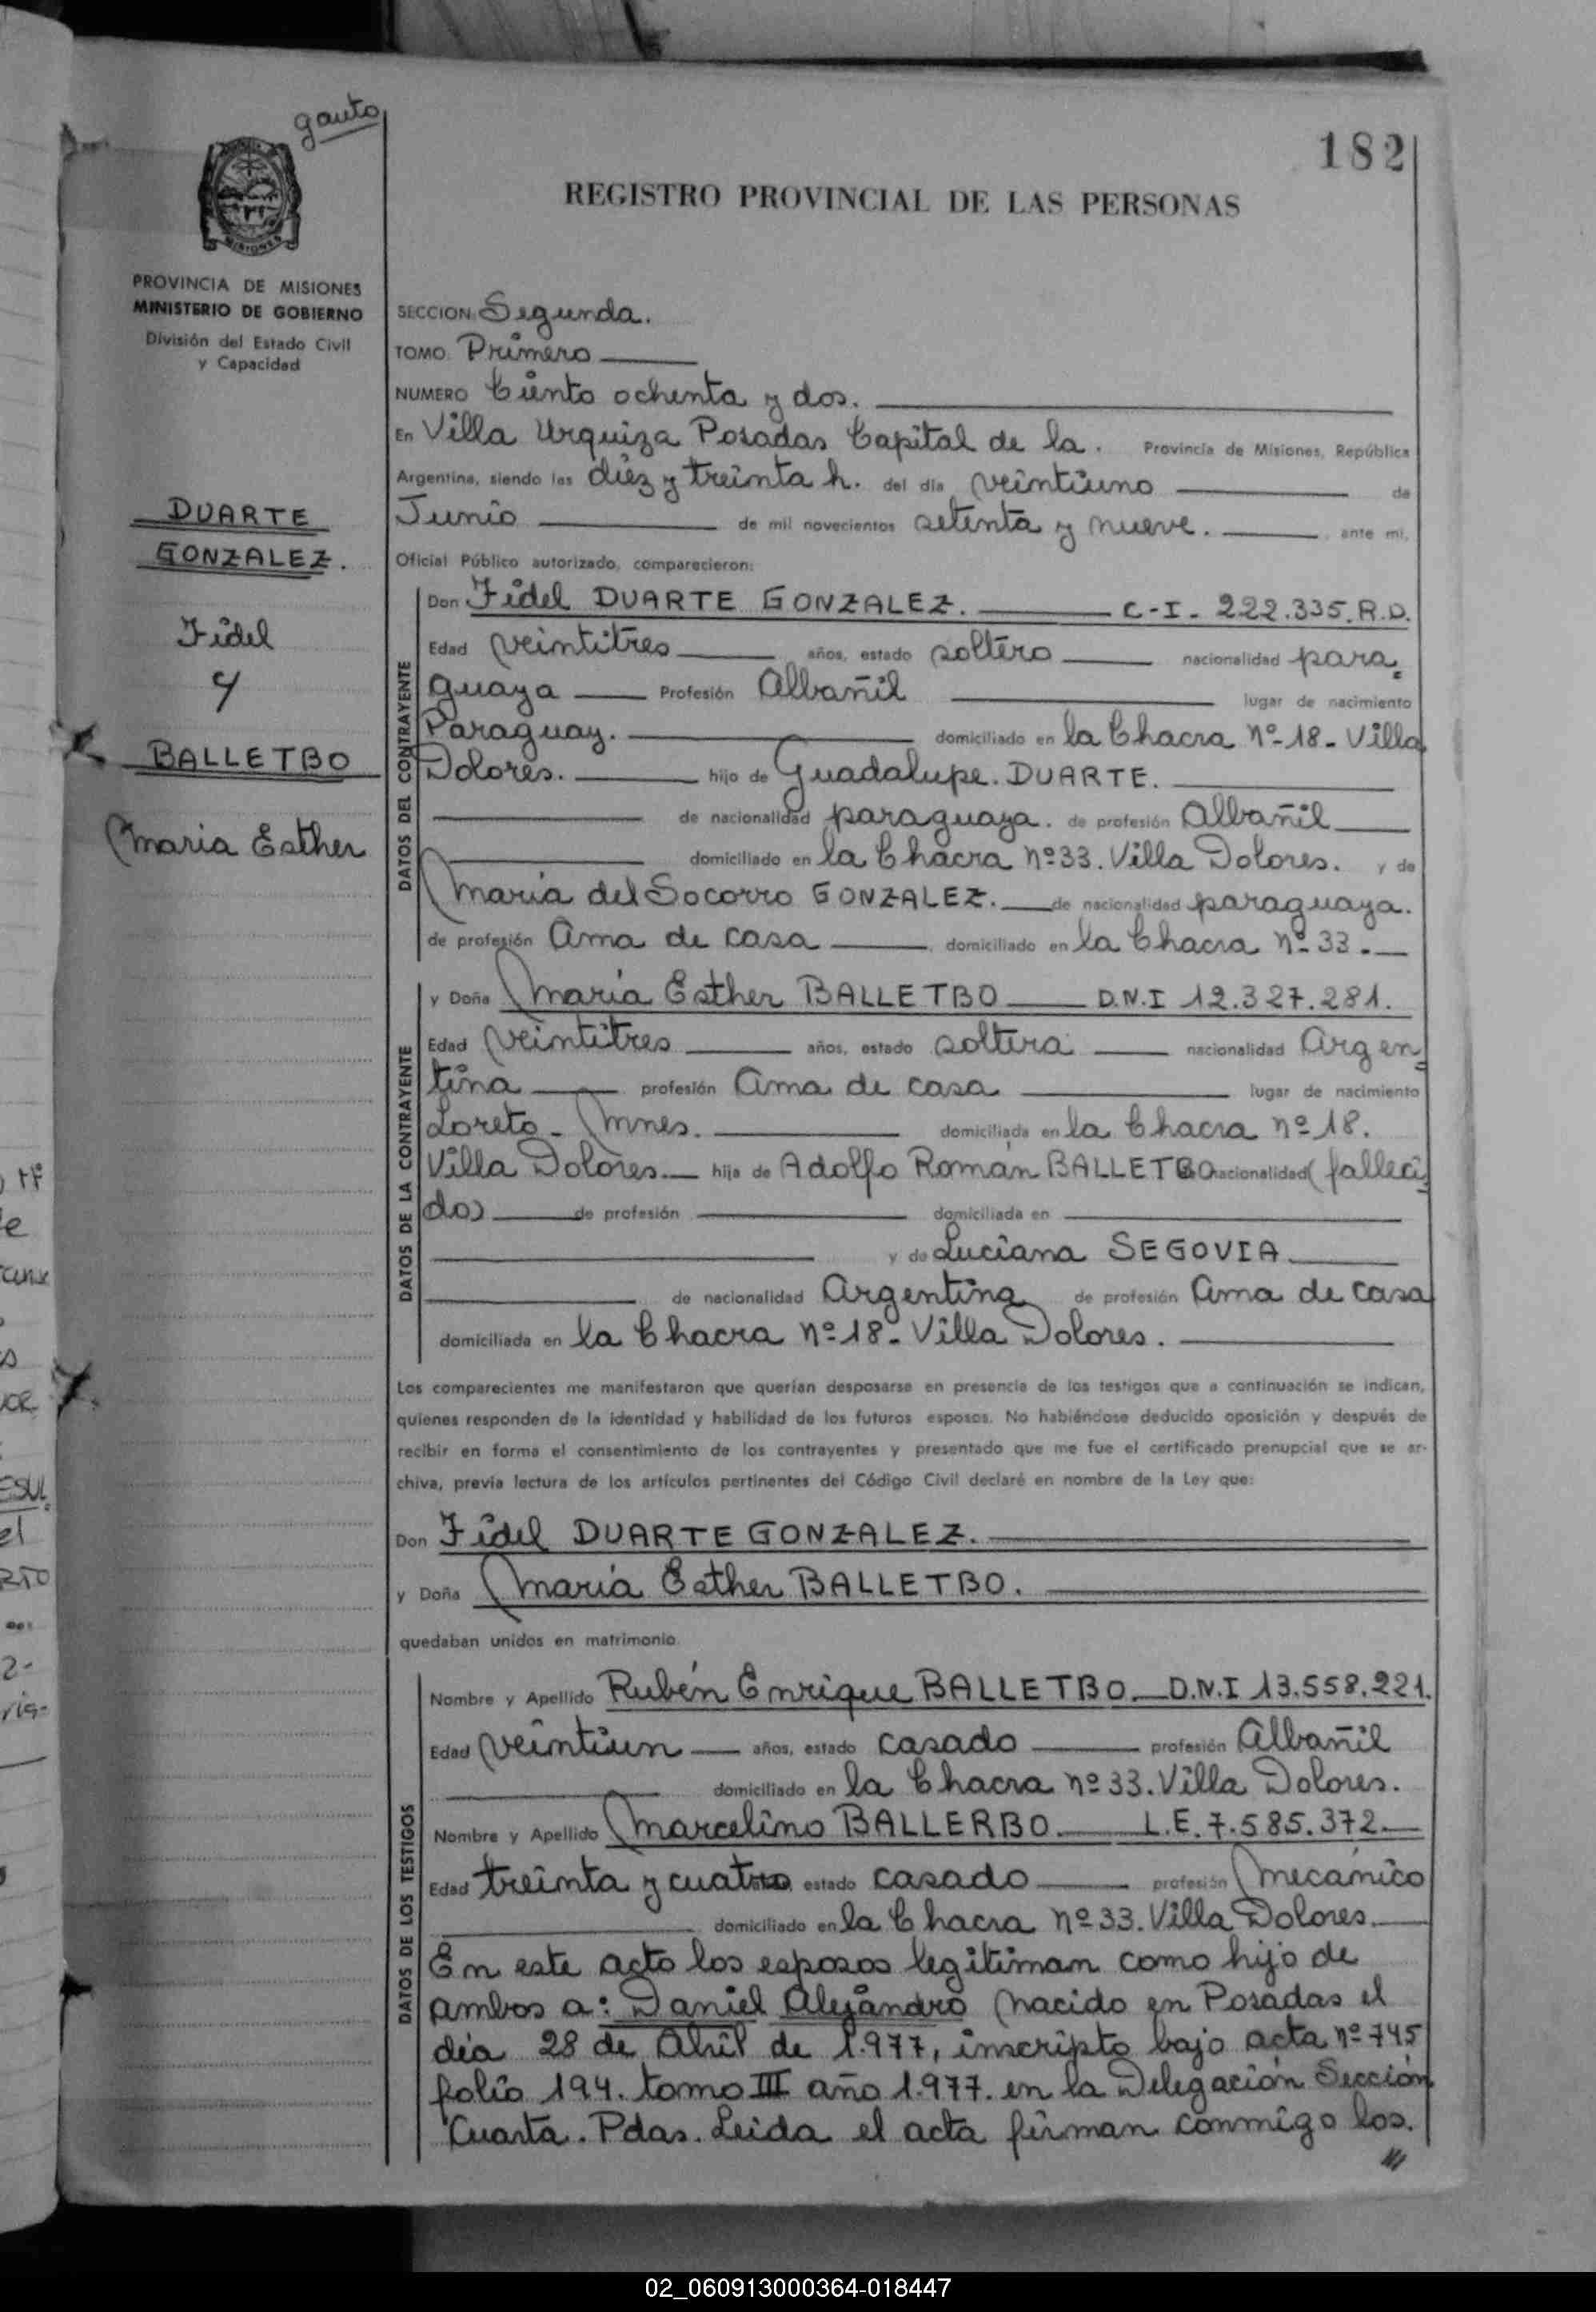 gauto
182
REGISTRO PROVINCIAL DE LAS PERSONAS
MISIONES
PROVINCIA DE MISIONES
MINISTERIO DE GOBIERNO
División del Estado Civil
y Capacidad
DUARTE
GONZALEZ.
Fidel
y
BALLETBO
Maria Esther
SECCION Segunda.
TOMO Primero
NUMERO Ciento ochenta y dos.
En Villa Urquiza Posadas Capital de la. Provincia de Misiones, República
Argentina, siendo las diez y treinta h. del día veintiuno de
Junio de mil novecientos setenta y nueve. ante mi,
Oficial Público autorizado, comparecieron:
DATOS DEL CONTRAYENTE
Don Fidel DUARTE GONZALEZ. C-I- 222.335.R.D.
Edad veintitres años, estado soltero nacionalidad para
guaya Profesión Albañil lugar de nacimiento
Paraguay. domiciliado en la Chacra nº-18- Villa
Dolores. hijo de Guadalupe. DUARTE.
de nacionalidad paraguaya. de profesión Albañil
domiciliado en la Chacra nº33. Villa Dolores. y de
Maria del Socorro GONZALEZ. de nacionalidad paraguaya.
de profesión Ama de casa domiciliado en la Chacra nº-33.
DATOS DE LA CONTRAYENTE
y Doña Maria Esther BALLETBO D.N.I 12.327.281.
Edad veintitres años, estado soltera nacionalidad Argen
tina profesión Ama de casa lugar de nacimiento
Loreto- Mnes. domiciliada en la Chacra nº18.
Villa Dolores. hija de Adolfo Román BALLETBO nacionalidad (falleci
do) de profesión domiciliada en
y de Luciana SEGOVIA
de nacionalidad Argentina de profesión Ama de casa
domiciliada en la Chacra nº18- Villa Dolores.
Los comparecientes me manifestaron que querían desposarse en presencia de los testigos que a continuación se indican,
quienes responden de la identidad y habilidad de los futuros esposos. No habiéndose deducido oposición y después de
recibir en forma el consentimiento de los contrayentes y presentado que me fue el certificado prenupcial que se ar-
chiva, previa lectura de los artículos pertinentes del Código Civil declaré en nombre de la Ley que:
Don Fidel DUARTE GONZALEZ.
y Doña Maria Esther BALLETBO.
quedaban unidos en matrimonio
DATOS DE LOS TESTIGOS
Nombre y Apellido Rubén Enrique BALLETBO. D.N.I 13.558.221.
Edad veintiun años, estado casado profesión Albañil
domiciliado en la Chacra nº33. Villa Dolores.
Nombre y Apellido Marcelino BALLERBO. L.E. 7.585.372.
Edad treinta y cuatro estado casado profesión mecánico
domiciliado en la Chacra nº33. Villa Dolores.
En este acto los esposos legitiman como hijo de
ambos a: Daniel Alejandro nacido en Posadas el
día 28 de Abril de 1.977, inscripto bajo acta nº745
folio 194. tomo III año 1.977. en la Delegación Sección
Cuarta. Pdas. Leida el acta firman conmigo los.
02_060913000364-018447